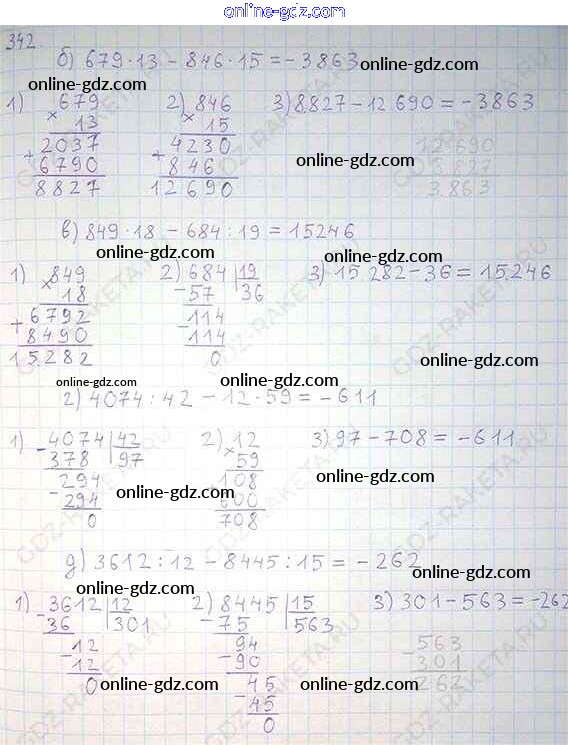 online-gdz.com
342
б) 679·13 – 846·15 = – 3863 online-gdz.com
online-gdz.com
1) 679 2) 846 3) 8827 – 12690 = – 3863
× 13 × 15
2037 4230 12690
+ 6790 + 846 online-gdz.com 8827
8827 12690 3863
в) 849·18 – 684 : 19 = 15246
online-gdz.com online-gdz.com
1) 849 2) 684 19 3) 15 282 – 36 = 15246
× 18 – 57 36
+ 6792 114 online-gdz.com
8490 – 114
15282 0
online-gdz.com online-gdz.com
г) 4074 : 42 – 12·59 = – 611
1) – 4074 42 2) 12 3) 97 – 708 = – 611
378 97 × 59
294 108 online-gdz.com
– 294 online-gdz.com 600
0 708
online-gdz.com
д) 3612 : 12 – 8445 : 15 = – 262
online-gdz.com online-gdz.com
1) – 3612 12 2) 8445 15 3) 301 – 563 = – 262
36 301 – 75 563
12 94 – 563
– 12 – 90 301
0 online-gdz.com 45 online-gdz.com 262
– 45
0
GDZ-RAKETA.RU